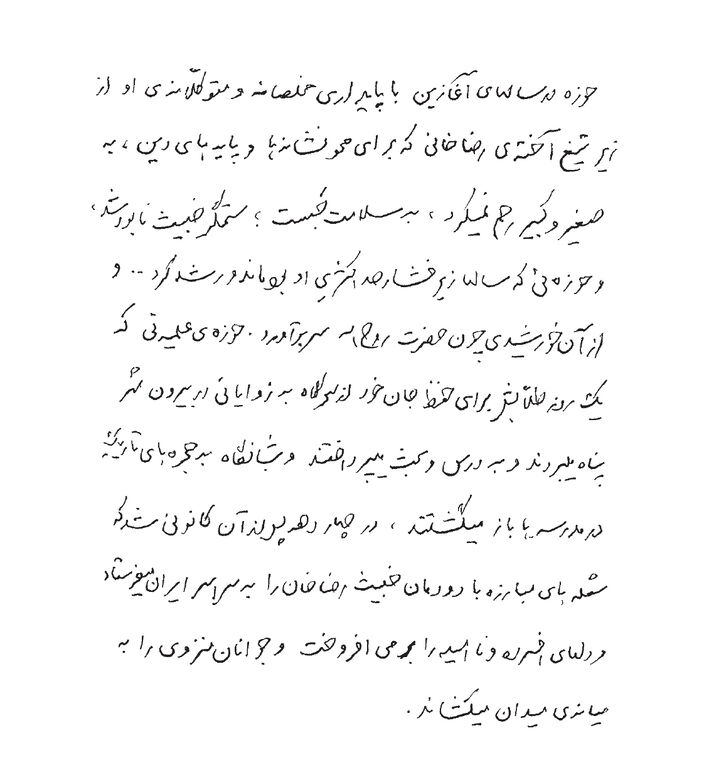 حوزه در سالهای آغازین با پایداری مخلصانه و متوکّلانه‌ی او از
زیر تیغ آخته‌ی رضاخانی که برای محو نشانه‌ها و پایه‌های دین، به
صغیر و کبیر رحم نمیکرد، به سلامت جَست؛ ستمگر خبیث نابود شد،
و حوزه‌ئی که سالها زیر فشار حداکثریِ او بود ماند و رشد کرد .. و
از آن خورشیدی چون حضرت روح الله سر برآورد. حوزه‌ی علمیه‌ئی که
یک روز طلّابش برای حفظ جان خود از سحرگاه به زوایائی در بیرون شهر
پناه میبردند و به درس و بحث میپرداختند و شبانگاه به حجره‌های تاریک
در مدرسه‌ها باز میگشتند، در چهار دهه پس از آن کانونی شد که
شعله‌های مبارزه با دودمان خبیث رضاخان را به سراسر ایران میفرستاد
و دلهای افسرده و ناامید را برمی افروخت و جوانان منزوی را به
میانه‌ی میدان میکشاند.